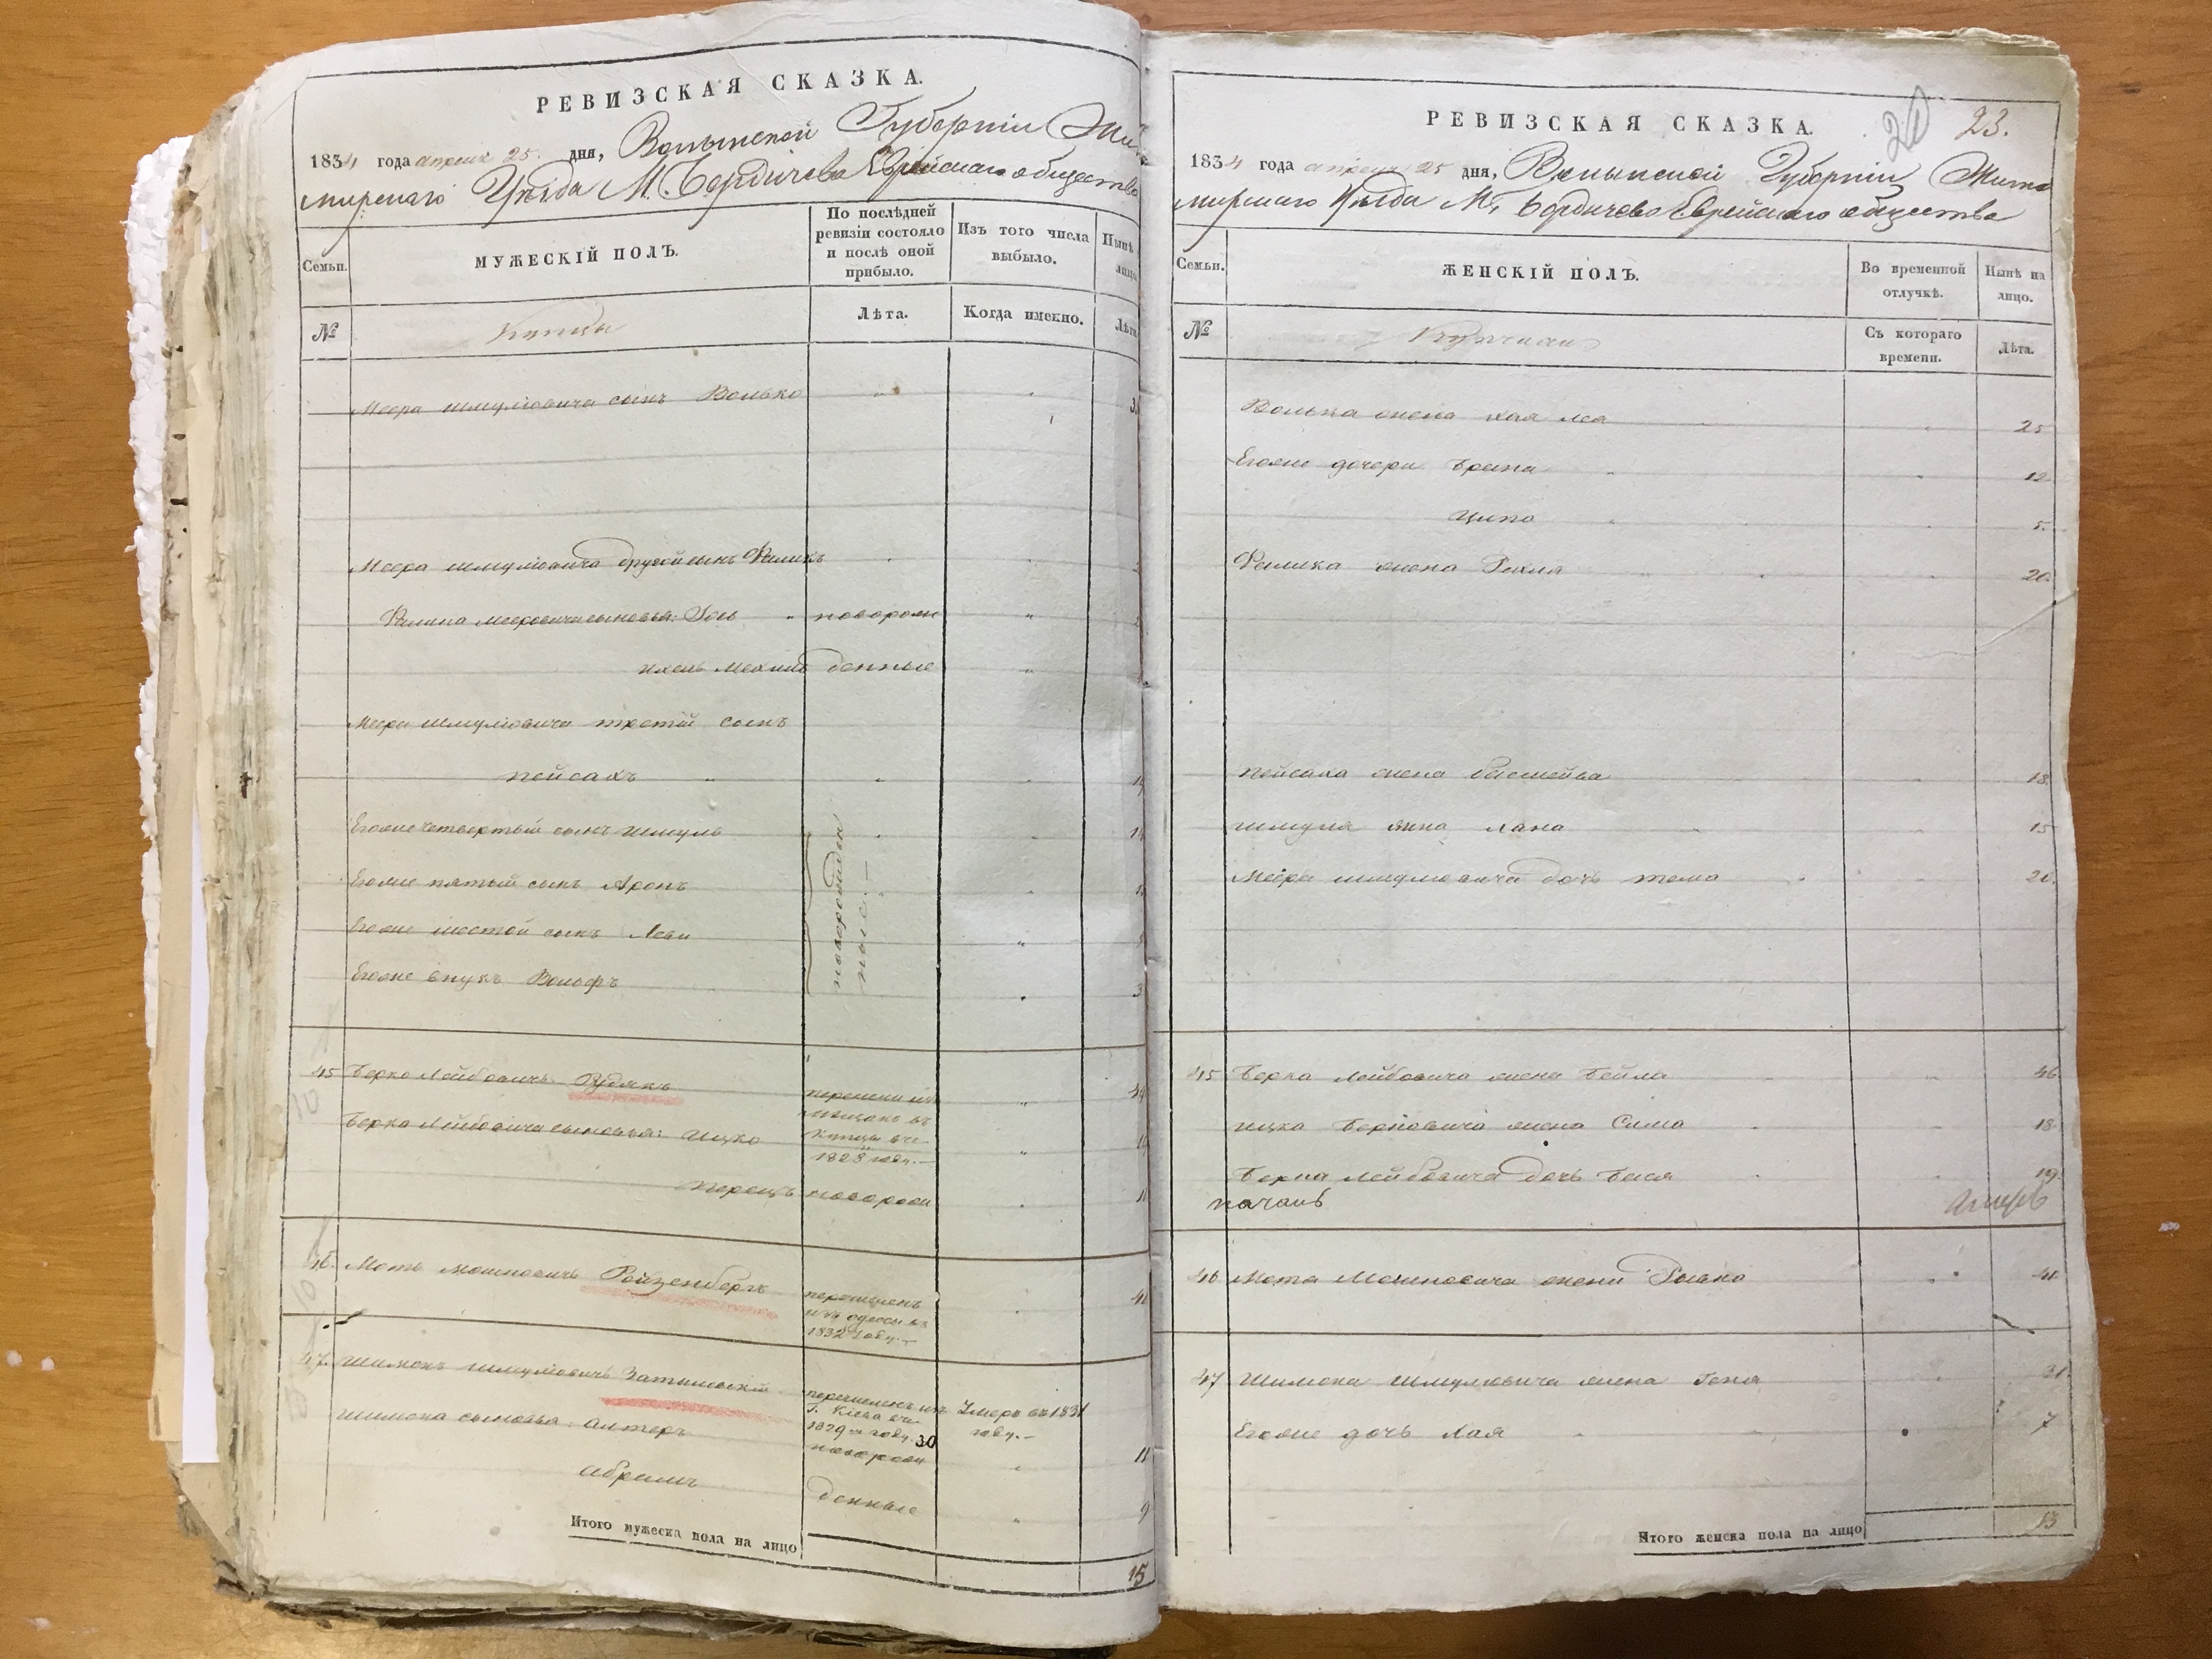 РЕВИЗСКАЯ СКАЗКА.
1834 года апреля 25 дня, Волынской Губерніи Жит
мирскаго Уѣзда М. Бердичева Еврейскаго общества
Семьи.
МУЖЕСКІЙ ПОЛЪ.
По послѣдней ревизіи состояло и послѣ оной прибыло.
Изъ того числа выбыло.
Нынѣ
лицо
№
Купцы
Лѣта.
Когда именно.
Лѣта
Меера Шмулiовича сынъ Волько
Меера Шмулiовича другой сынъ Фаликъ
Фалика Мееровича сыновья: Іось новорож
денные
Меера Шмулiовича третій сынъ
Пейсахъ
Егоже четвертый сынъ Шмуль
Егоже пятый сынъ Аронъ
Егоже шестой сынъ Леви
Егоже внукъ Вольфъ 3
45 Берко Лейбовичъ Рудякъ
перечислен изъ мещанъ въ купцы въ 1828 году.
Берка Лейбовича сыновья: Ицко
Перецъ новорож 11
46. Моть Мошковичъ Ройзенбергъ 41
перечисленъ изъ Одессы въ 1832 году.
47. Шимонъ Шмулiовичъ Затыловскій
перечисленъ изъ г. Кіева въ 1829 м году. 30
Умеръ въ 1831 году.
Шимона сыновья: Алтеръ новорож 11
Абрамъ денные 9
Итого мужеска пола на лицо
15
РЕВИЗСКАЯ СКАЗКА.
20 23.
1834 года апреля 25 дня, Волынской Губерніи Жито
мирскаго Уѣзда М. Бердичева Еврейскаго общества
Семьи.
ЖЕНСКІЙ ПОЛЪ.
Во временной отлучкѣ.
Нынѣ на лицо.
№
Купчихи
Съ котораго времени.
Лѣта.
Волька жена Хая Лея 25
Егоже дочери Брана 12
Ципа 5
Фалика жена Рахля 20
Пейсаха жена Басшейва 18
Шмуля жена Хана 15
Меера Шмулiовича дочь Тема 20
45 Берка Лейбовича жена Бейла 46
Ицка Берковича жена Сима 18
Берка Лейбовича дочь Бася 19
46 Мотя Мошковича жена Рывка 41
47 Шимона Шмулiовича жена Геня 31
Егоже дочь Хая 7
Итого женска пола на лицо 13